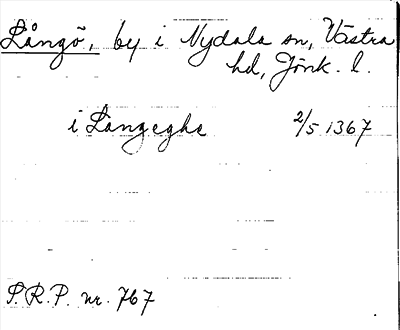 Långö, by i Nydala sn, Västra
hd, Jönk. l.
i Langeghe 2/5 1367
S.R.P. nr. 767